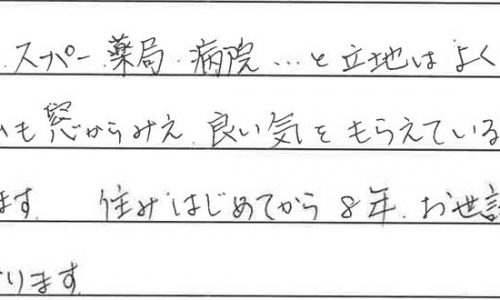 スーパー.薬局.病院…と立地はよく
も窓からみえ、良い気をもらえている
ます 住みはじめてから8年、お世話
ります